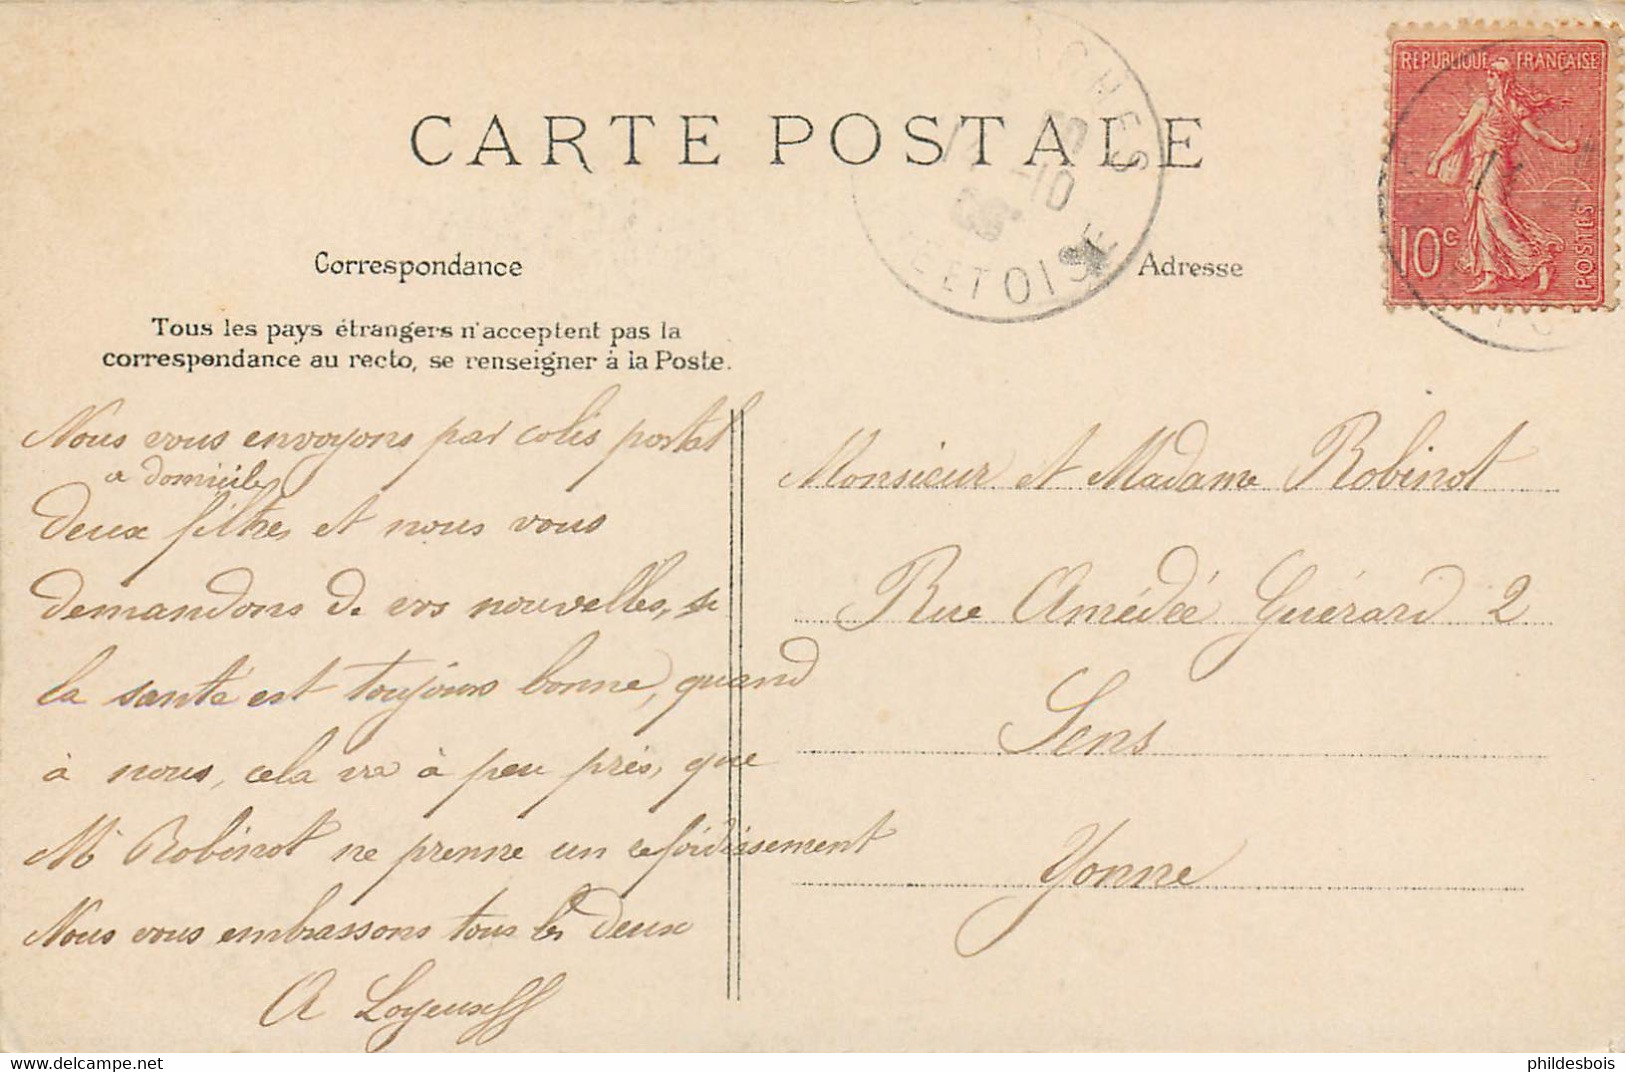 CARTE POSTALE
RÉPUBLIQUE FRANÇAISE
10c
POSTES
Correspondance
Adresse
Tous les pays étrangers n'acceptent pas la
correspondance au recto, se renseigner à la Poste.
Nous vous envoyons par colis postal
a domicile
deux filtres et nous vous
demandons de vos nouvelles, si
la santé est toujours bonne, quand
à nous, cela va à peu près, que
Mr Robinot ne prenne un refoidissement
Nous vous embrassons tous les deux
A Loyeux
Monsieur et Madame Robinot
Rue Amédée Guérard 2
Sens
Yonne
10
OISE
delcampe.net
phildesbois